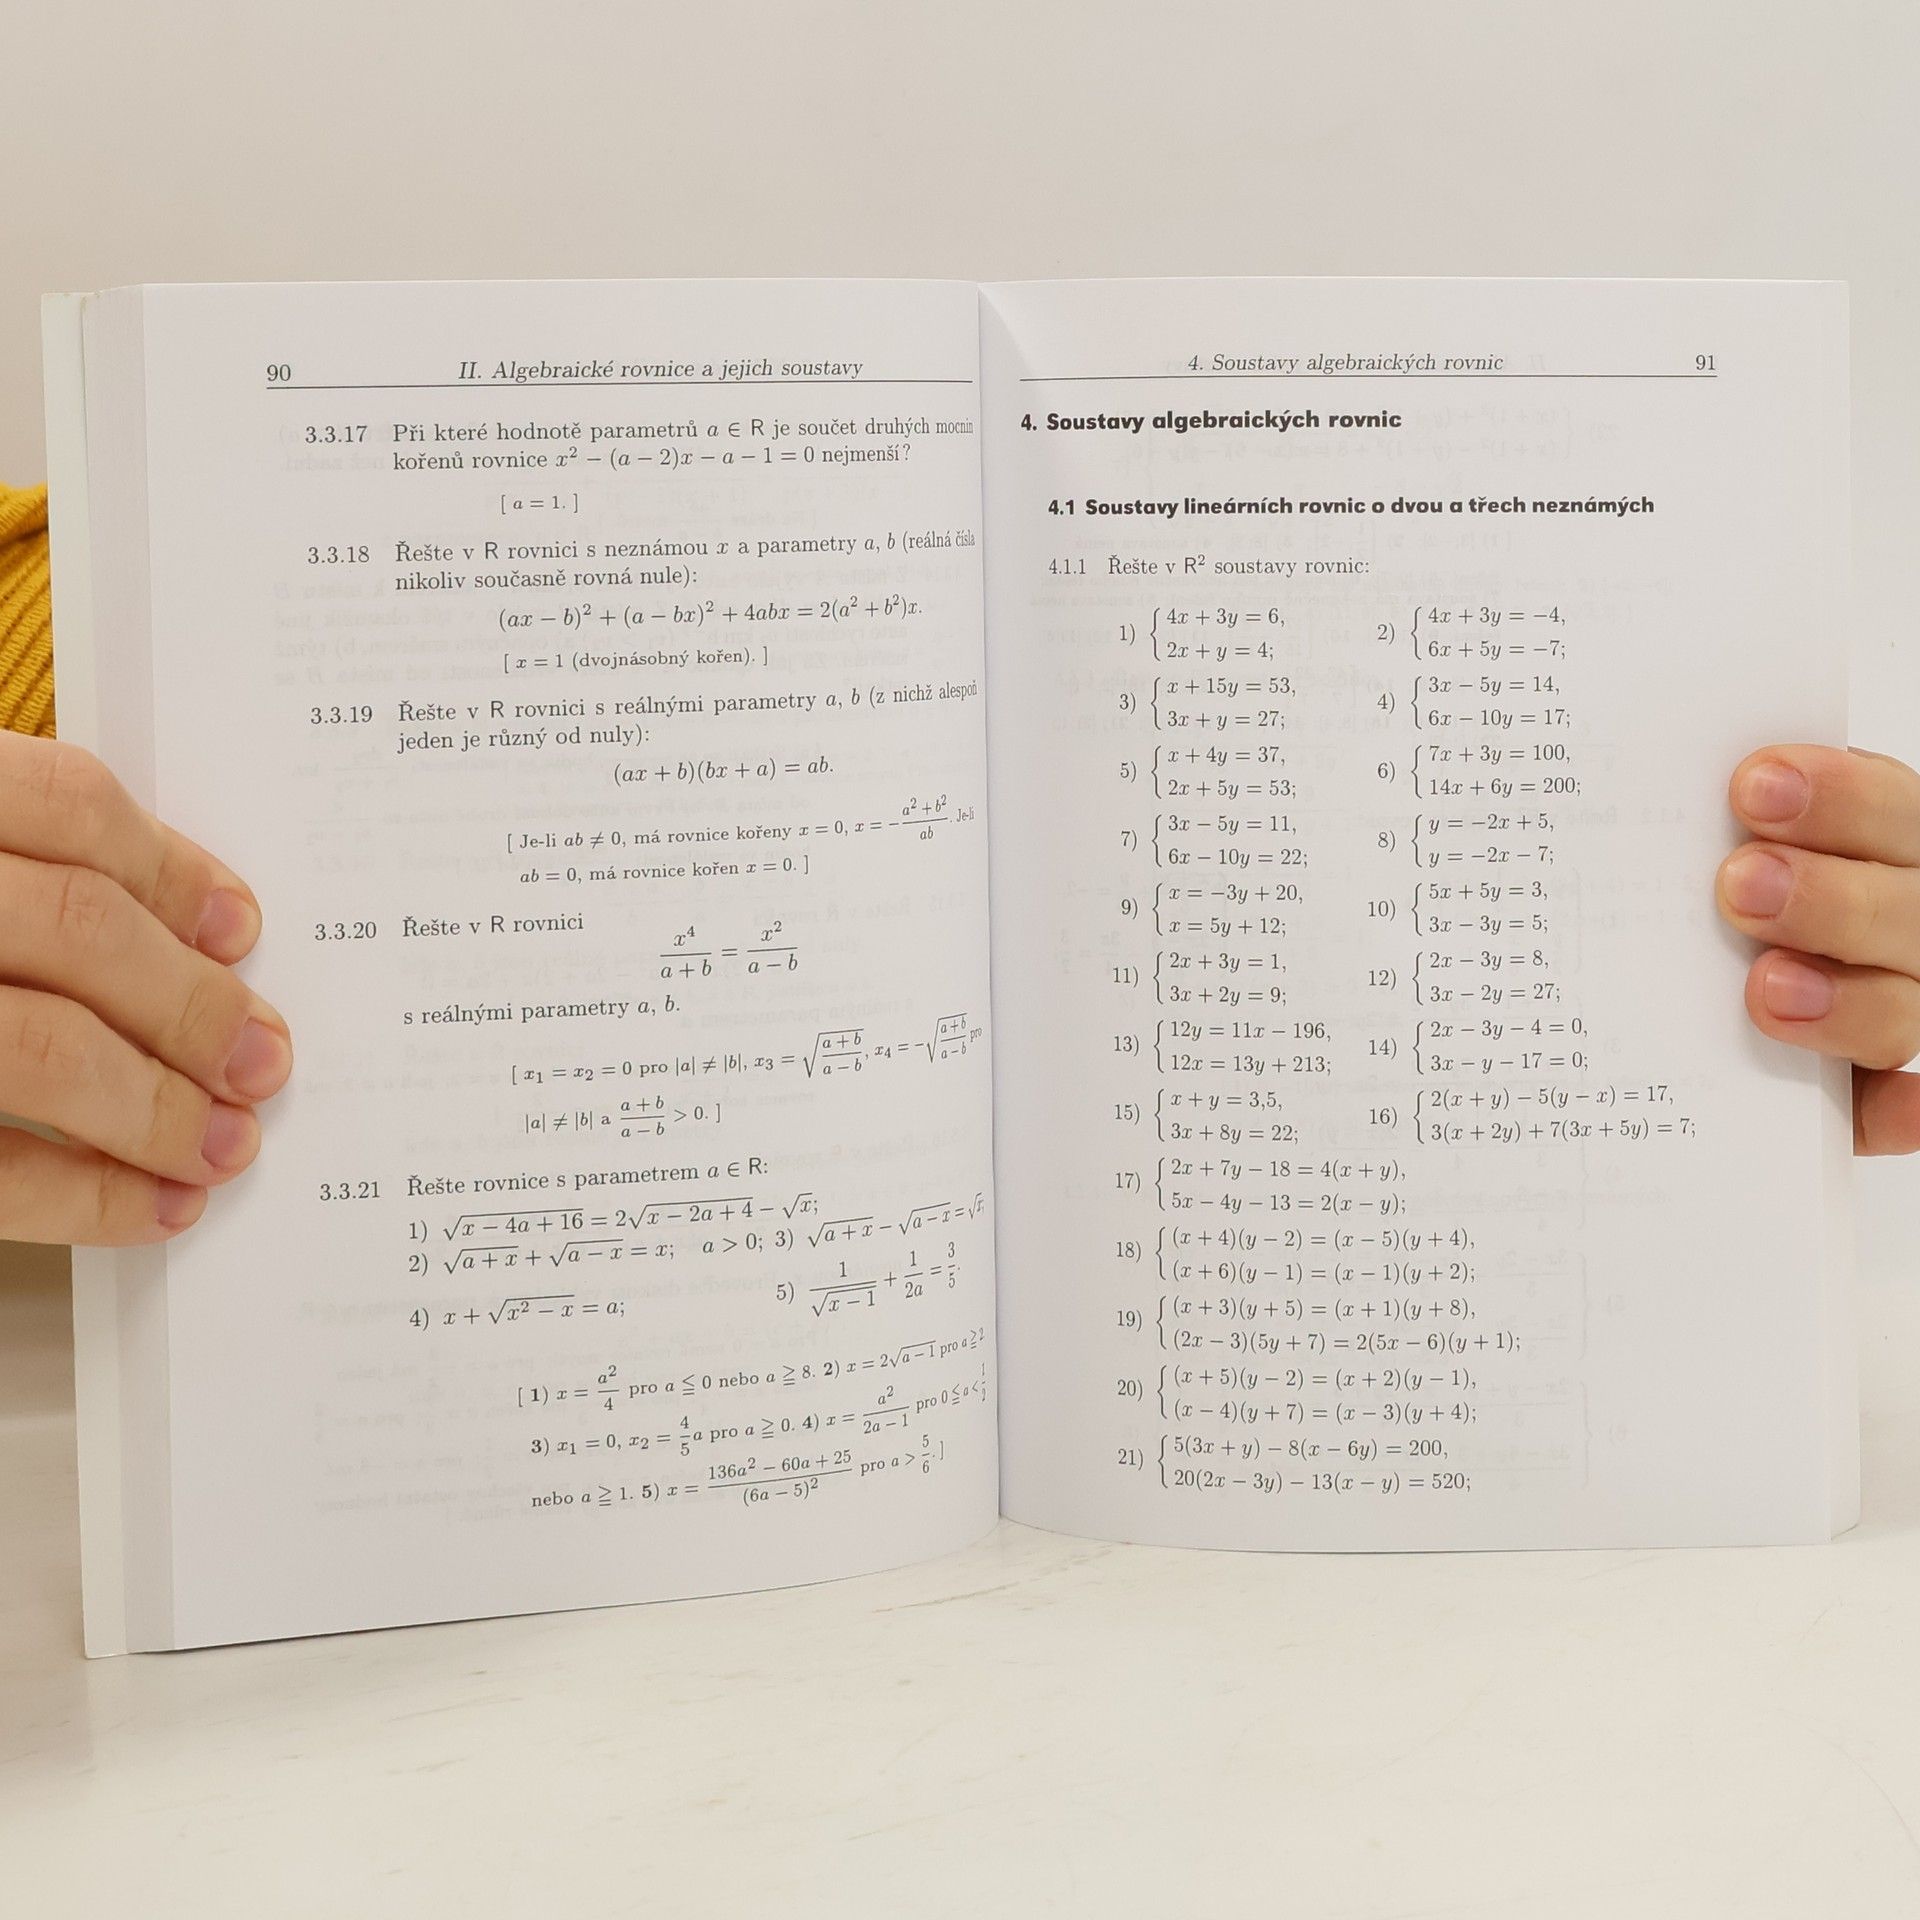 90 II. Algebraické rovnice a jejich soustavy
3.3.17 Při které hodnotě parametrů a ∈ R je součet druhých mocnin
kořenů rovnice x² − (a − 2)x − a − 1 = 0 nejmenší?
[ a = 1. ]
3.3.18 Řešte v R rovnici s neznámou x a parametry a, b (reálná čísla
nikoliv současně rovná nule):
(ax − b)² + (a − bx)² + 4abx = 2(a² + b²)x.
[ x = 1 (dvojnásobný kořen). ]
3.3.19 Řešte v R rovnici s reálnými parametry a, b (z nichž alespoň
jeden je různý od nuly):
(ax + b)(bx + a) = ab.
[ Je-li ab ≠ 0, má rovnice kořeny x = 0, x = −(a² + b²)/(ab). Je-li
ab = 0, má rovnice kořen x = 0. ]
3.3.20 Řešte v R rovnici
x⁴/(a + b) = x²/(a − b)
s reálnými parametry a, b.
[ x₁ = x₂ = 0 pro |a| ≠ |b|, x₃ = √((a + b)/(a − b)), x₄ = −√((a + b)/(a − b)) pro
|a| ≠ |b| a (a + b)/(a − b) > 0. ]
3.3.21 Řešte rovnice s parametrem a ∈ R:
1) √(x − 4a + 16) = 2√(x − 2a + 4) − √x;
2) √(a + x) + √(a − x) = x; a > 0; 3) √(a + x) − √(a − x) = √x;
4) x + √(x² − x) = a; 5) 1/√(x − 1) + 1/(2a) = 3/5.
[ 1) x = a²/4 pro a ≦ 0 nebo a ≧ 8. 2) x = 2√(a − 1) pro a ≧ 2
3) x₁ = 0, x₂ = (4/5)a pro a ≧ 0. 4) x = a²/(2a − 1) pro 0 ≦ a < 1/2
nebo a ≧ 1. 5) x = (136a² − 60a + 25)/(6a − 5)² pro a > 5/6. ]
4. Soustavy algebraických rovnic 91
4. Soustavy algebraických rovnic
4.1 Soustavy lineárních rovnic o dvou a třech neznámých
4.1.1 Řešte v R² soustavy rovnic:
1) { 4x + 3y = 6, 2) { 4x + 3y = −4,
2x + y = 4; 6x + 5y = −7;
3) { x + 15y = 53, 4) { 3x − 5y = 14,
3x + y = 27; 6x − 10y = 17;
5) { x + 4y = 37, 6) { 7x + 3y = 100,
2x + 5y = 53; 14x + 6y = 200;
7) { 3x − 5y = 11, 8) { y = −2x + 5,
6x − 10y = 22; y = −2x − 7;
9) { x = −3y + 20, 10) { 5x + 5y = 3,
x = 5y + 12; 3x − 3y = 5;
11) { 2x + 3y = 1, 12) { 2x − 3y = 8,
3x + 2y = 9; 3x − 2y = 27;
13) { 12y = 11x − 196, 14) { 2x − 3y − 4 = 0,
12x = 13y + 213; 3x − y − 17 = 0;
15) { x + y = 3,5, 16) { 2(x + y) − 5(y − x) = 17,
3x + 8y = 22; 3(x + 2y) + 7(3x + 5y) = 7;
17) { 2x + 7y − 18 = 4(x + y),
5x − 4y − 13 = 2(x − y);
18) { (x + 4)(y − 2) = (x − 5)(y + 4),
(x + 6)(y − 1) = (x − 1)(y + 2);
19) { (x + 3)(y + 5) = (x + 1)(y + 8),
(2x − 3)(5y + 7) = 2(5x − 6)(y + 1);
20) { (x + 5)(y − 2) = (x + 2)(y − 1),
(x − 4)(y + 7) = (x − 3)(y + 4);
21) { 5(3x + y) − 8(x − 6y) = 200,
20(2x − 3y) − 13(x − y) = 520;